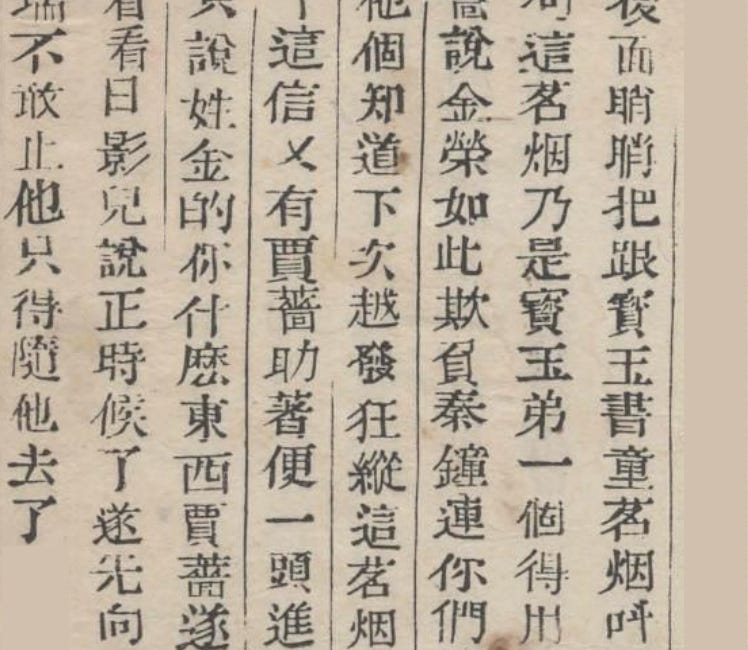 後面悄悄把跟寶玉書童茗烟叫
這茗烟乃是寶玉弟一個得用
薔說金榮如此欺負秦鐘連你們
他個知道下次越發狂縱這茗烟
這信乂有賈薔助著便一頭進
說姓金的你什麽東西賈薔遂
看看日影兒說正時候了遂先向
瑞不敢止他只得隨他去了